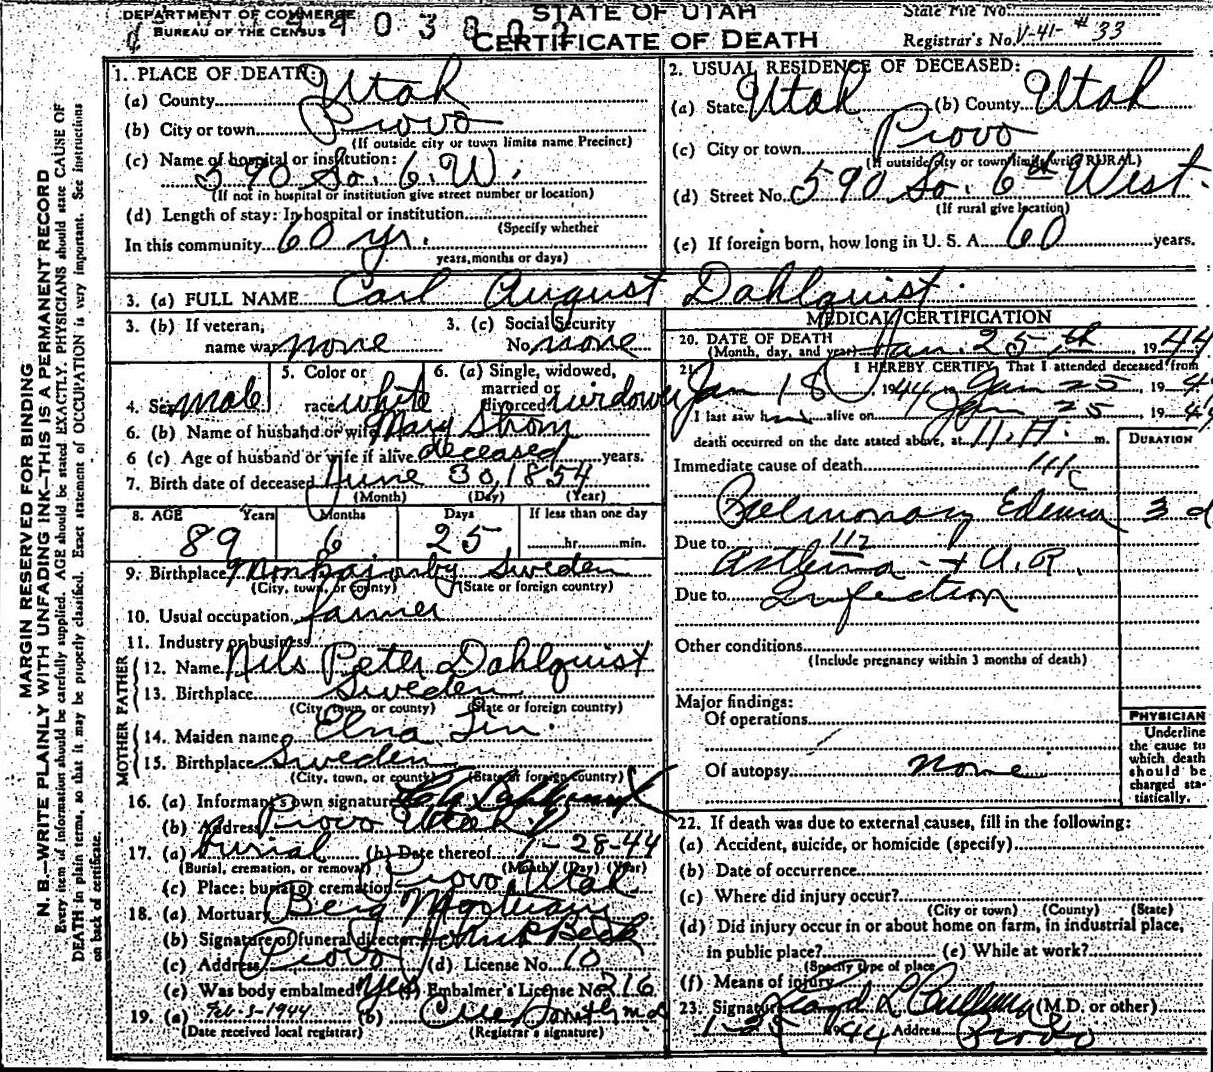 DEPARTMENT OF COMMERCE
BUREAU OF THE CENSUS
STATE OF UTAH
CERTIFICATE OF DEATH
State File No.
Registrar's No. V-41- #33
MARGIN RESERVED FOR BINDING
N. B.—WRITE PLAINLY WITH UNFADING INK—THIS IS A PERMANENT RECORD
Every item of information should be carefully supplied. AGE should be stated EXACTLY. PHYSICIANS should state CAUSE OF
DEATH in plain terms, so that it may be properly classified. Exact statement of OCCUPATION is very important. See instructions
on back of certificate.
1. PLACE OF DEATH:
(a) County Utah
(b) City or town Provo
(If outside city or town limits name Precinct)
(c) Name of hospital or institution:
590 So. 6. W.
(If not in hospital or institution give street number or location)
(d) Length of stay: In hospital or institution
(Specify whether
In this community 60 yr.
years, months or days)
2. USUAL RESIDENCE OF DECEASED:
(a) State Utah (b) County Utah
(c) City or town Provo
(If outside city or town limits write RURAL)
(d) Street No. 590 So. 6th West.
(If rural give location)
(e) If foreign born, how long in U. S. A. 60 years.
3. (a) FULL NAME Carl August Dahlquist
3. (b) If veteran, name war none
3. (c) Social Security No. none
4. Sex male
5. Color or race white
6. (a) Single, widowed, married or divorced widower
6. (b) Name of husband or wife Mary Strom
6 (c) Age of husband or wife if alive deceased years.
7. Birth date of deceased June 30, 1854
(Month) (Day) (Year)
8. AGE Years Months Days If less than one day
89 6 25 hr. min.
9. Birthplace Sweden
(City, town, or county) (State or foreign country)
10. Usual occupation farmer
11. Industry or business
FATHER
12. Name Nils Peter Dahlquist
13. Birthplace Sweden
(City, town, or county) (State or foreign country)
MOTHER
14. Maiden name Elna
15. Birthplace Sweden
(City, town, or county) (State or foreign country)
16. (a) Informant's own signature
(b) Address Provo Utah
17. (a) Burial (b) Date thereof 1-28-44
(Burial, cremation, or removal) (Month) (Day) (Year)
(c) Place: burial or cremation Provo, Utah
18. (a) Mortuary Berg Mortuary
(b) Signature of funeral director
(c) Address Provo (d) License No. 10
(e) Was body embalmed yes (f) Embalmer's License No. 216
19. (a) Feb-3-1944 (b)
(Date received local registrar) (Registrar's signature)
MEDICAL CERTIFICATION
20. DATE OF DEATH
(Month, day, and year) Jan. 25th 1944
21. I HEREBY CERTIFY, That I attended deceased from
Jan 18 1944 Jan 25 19 44
I last saw h alive on Jan 25 19 44
death occurred on the date stated above, at 11 A. m.
DURATION
Immediate cause of death 111c
Pulmonary Edema 3 d
Due to 112
Asthma - + U.R.
Due to Infection
Other conditions
(Include pregnancy within 3 months of death)
Major findings:
Of operations
Of autopsy none
PHYSICIAN
Underline
the cause to
which death
should be
charged sta-
tistically.
22. If death was due to external causes, fill in the following:
(a) Accident, suicide, or homicide (specify)
(b) Date of occurrence
(c) Where did injury occur?
(City or town) (County) (State)
(d) Did injury occur in or about home on farm, in industrial place,
in public place? (e) While at work?
(Specify type of place)
(f) Means of injury
23. Signature (M.D. or other)
1944 Address Provo